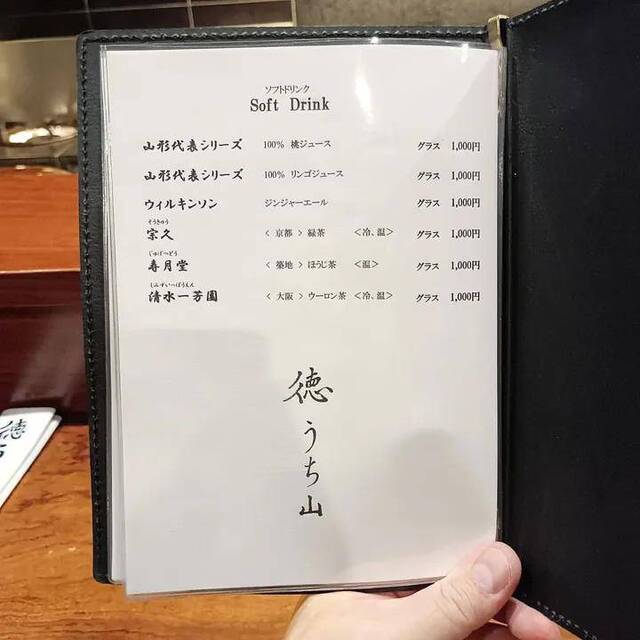 ソフトドリンク
Soft Drink
山形代表シリーズ 100% 桃ジュース グラス 1,000円
山形代表シリーズ 100% リンゴジュース グラス 1,000円
ウィルキンソン ジンジャーエール グラス 1,000円
そうきゅう
宗久 <京都>緑茶 <冷、温> グラス 1,000円
じゅげつどう
寿月堂 <築地> ほうじ茶 <温> グラス 1,000円
しみずいっぽうえん
清水一芳園 <大阪> ウーロン茶 <冷、温> グラス 1,000円
徳うち山
徳